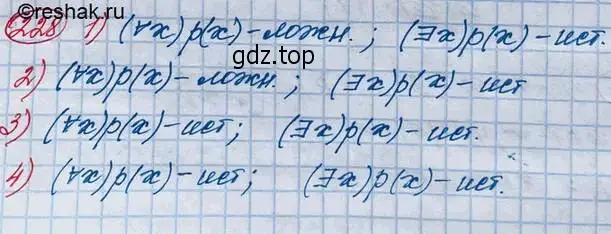 ©Reshak.ru
228 1) (∀x)p(x) - ложн.; (∃x)p(x) - ист.
gdz.top
2) (∀x)p(x) - ложн.; (∃x)p(x) - ист
3) (∀x)p(x) - ист; (∃x)p(x) - ист.
4) (∀x)p(x) - ист; (∃x)p(x) - ист.